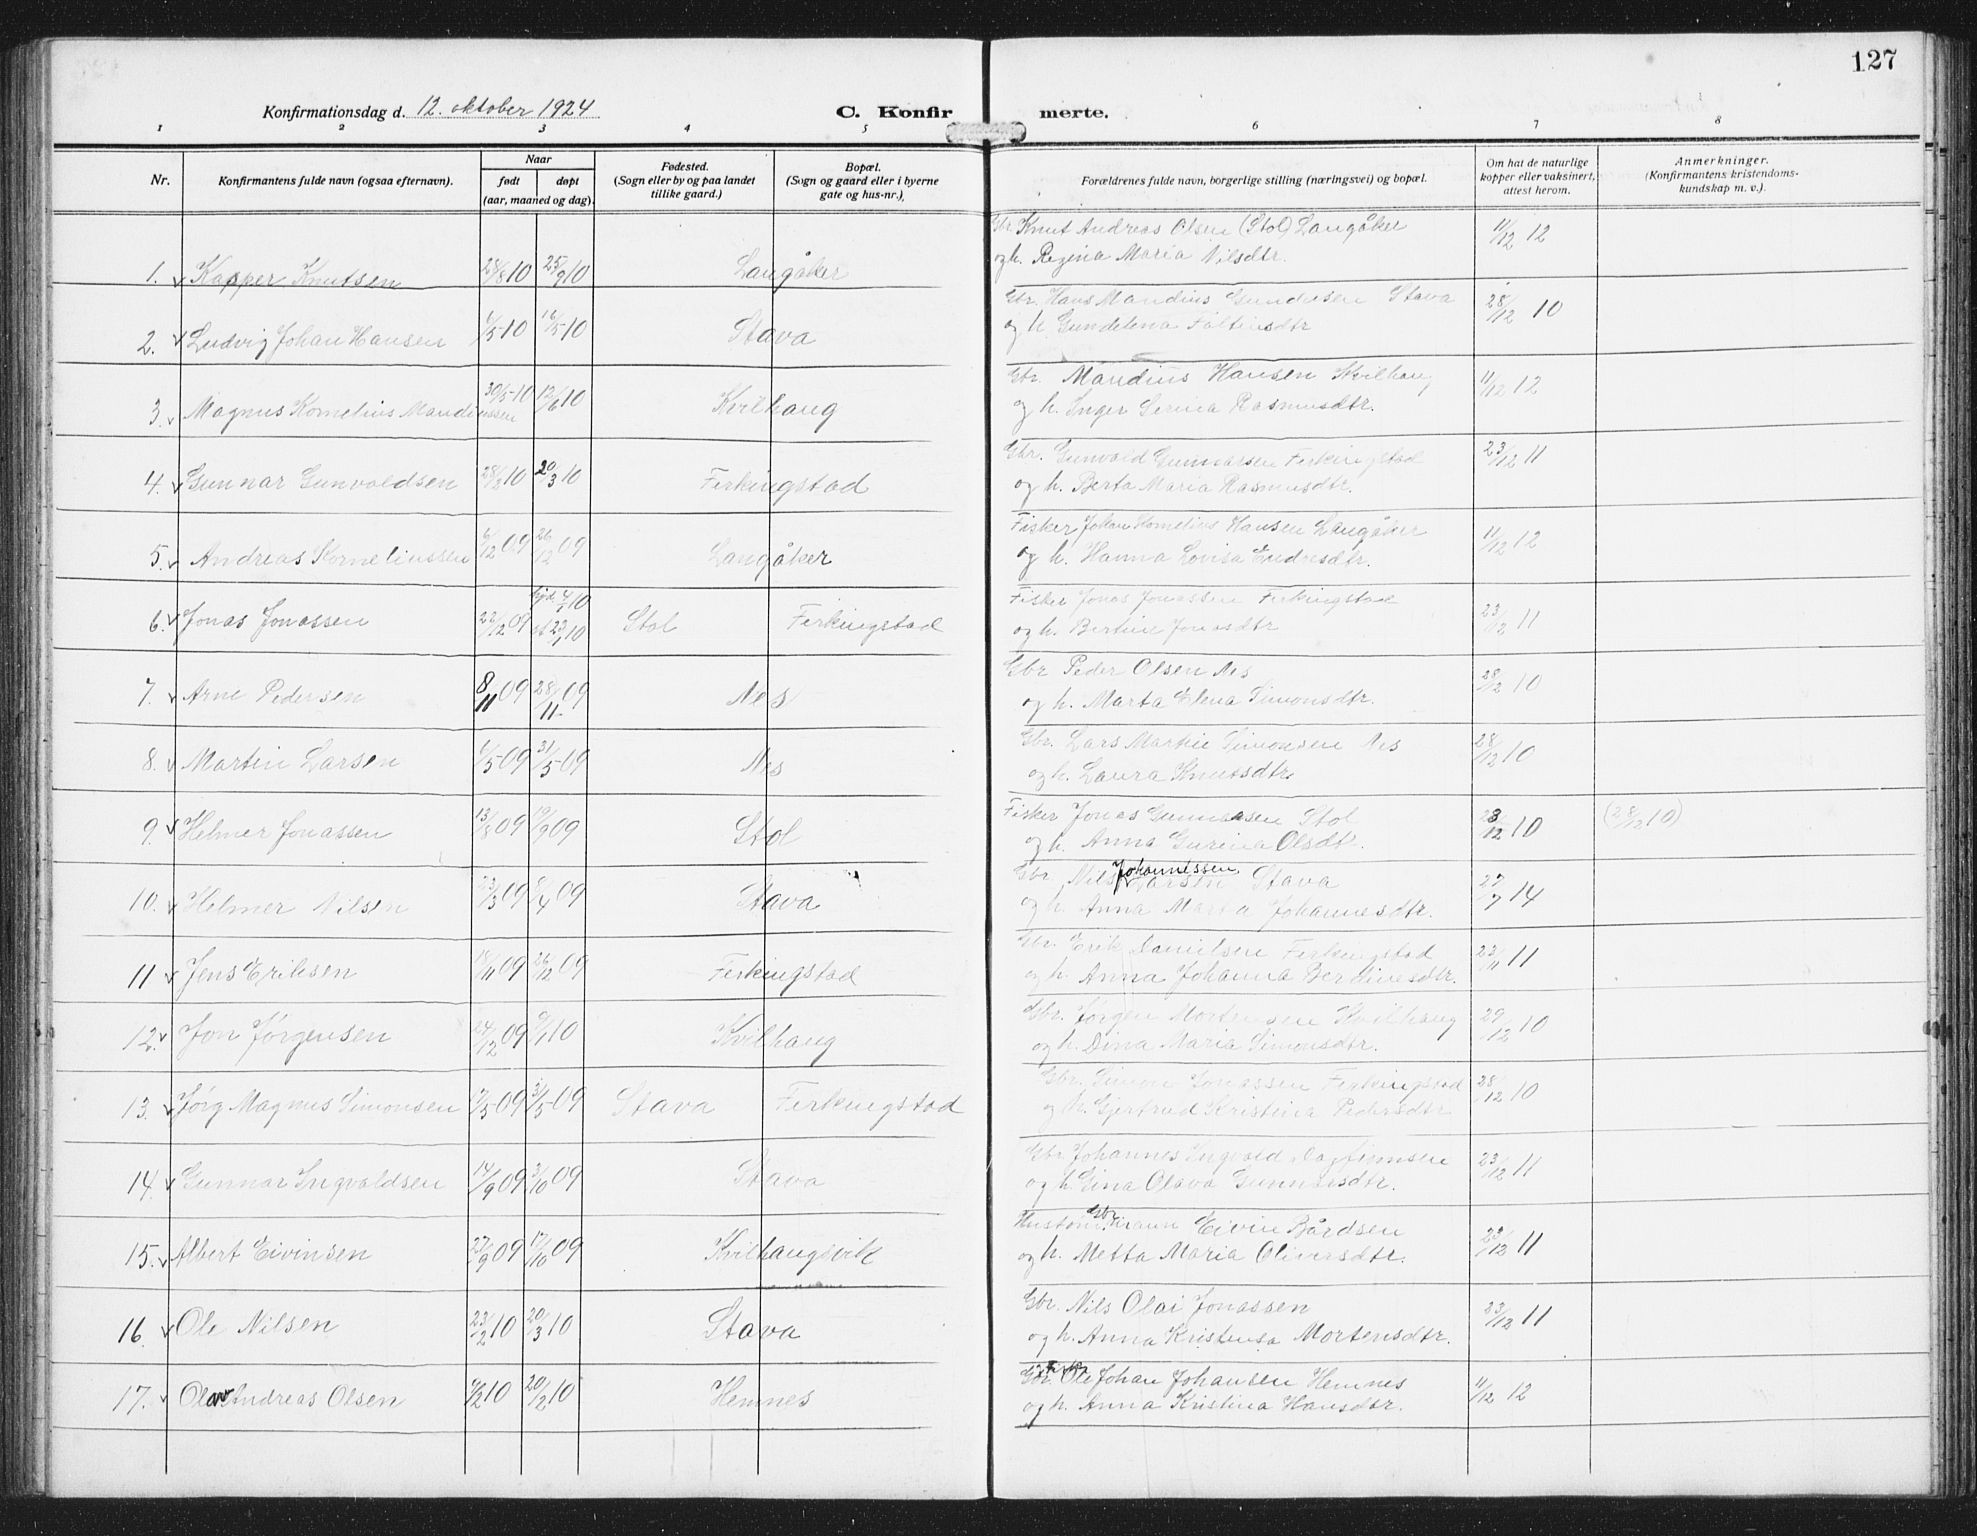 127
Konfirmationsdag d. 12. oktober 1924
C. Konfirmerte.
1 2 3 4 5 6 7 8
Nr.
Konfirmantens fulde navn (ogsaa efternavn).
Naar
født
døpt
(aar, maaned og dag).
Fødested.
(Sogn eller by og paa landet
tillike gaard.)
Bopæl.
(Sogn og gaard eller i byerne
gate og hus-nr.),
Forældrenes fulde navn, borgerlige stilling (næringsvei) og bopæl.
Om hat de naturlige
kopper eller vaksinert,
attest herom.
Anmerkninger.
(Konfirmantens kristendoms-
kundskap m. v.).
Gbr. Knut Andreas Olsen (Stol) Langåker 11/12 12
1. Kasper Knutsen 28/8 10 25/9 10 Langåker og h. Regina Maria Nilsdtr.
Gbr. Hans Mandius Gundersen Stava 28/12 10
2. Ludvig Johan Hansen 6/5 10 16/5 10 Stava og h. Gundelena Faltinsdtr
Gbr. Mandius Hansen Kvilhaug 11/12 12
3. Magnus Kornelius Mandiussen 30/5-10 12/6 10 Kvilhaug og h. Inger Serina Rasmusdtr.
Gbr. Gunvald Gunnarsen Ferkingstad 23/12 11
4. Gunnar Gunvaldsen 28/2 10 20/3 10 Ferkingstad og h. Berta Maria Rasmusdtr.
Fisker Johan Kornelius Hansen Langåker 11/12 12
5. Andreas Korneliussen 6/12 09 26/12 09 Langåker og h. Hanna Lovisa Endresdtr.
Fisker Jonas Jonassen Ferkingstad
6. Jonas Jonassen 22/12 09 hjd. 4/1 10 st. 23/1 10 Stol Ferkingstad og h. Bertine Jonasdtr 23/12 11
Gbr Peder Olsen Nes
7. Arne Pedersen 8/11 09 28/11 09 Nes og h. Marta Elena Simonsdtr. 28/12 10
Gbr. Lars Martin Simonsen Nes
8. Martin Larsen 6/5-09 31/5-09 Nes og h. Laura Knutsdtr. 28/12 10
Fisker Jonas Gunnarsen Stol
9. Helmer Jonassen 13/8 09 19/9 09 Stol og h. Anna Gurina Olsdt. 23/12 10 (28/12 10)
Gbr. Nils Johannessen Larsen Stava
10. Helmer Nilsen 23/3 09 8/4 09 Stava og h. Anna Marta Johannesdtr. 27/7 14
Gbr. Erik Danielsen Ferkingstad
11 Jens Eriksen 18/11 09 26/12 09 Ferkingstad og h. Anna Johanna Berdinesdtr. 23/11 11
Gbr. Jørgen Mortensen Kvilhaug
12. Jon Jørgensen 24/12 09 9/1 10 Kvilhaug og h. Dina Maria Simonsdtr. 29/12 10
Gbr. Simon Jonassen Ferkingstad
13. Jørg Magnus Simonsen 17/5-09 31/5-09 Stava Ferkingstad og h. Gjertrud Kristina Pedersdtr 28/12 10
Gbr Johannes Ingvald Dagfinnsen
14. Gunnar Ingvaldsen 14/9 09 3/10 09 Stava og h. Gina Olava Gunnarsdtr. 23/12 11
Gbr. Eivin Bårdsen
15. Albert Eivinsen 27/9 09 17/10 09 Kvilhaugsvik og h. Metta Maria Oliversdtr. 23/12 11
Gbr. Nils Olai Jonassen
16 Ole Nilsen 23/2 10 20/3 10 Stava og h. Anna Kristensa Mortensdtr. 23/12 11
Gbr. Ole Johan Johansen Hemnes
17. Olav Andreas Olsen 6/2 10 20/2 10 Hemnes og h. Anna Kristina Hansdtr. 11/12 12